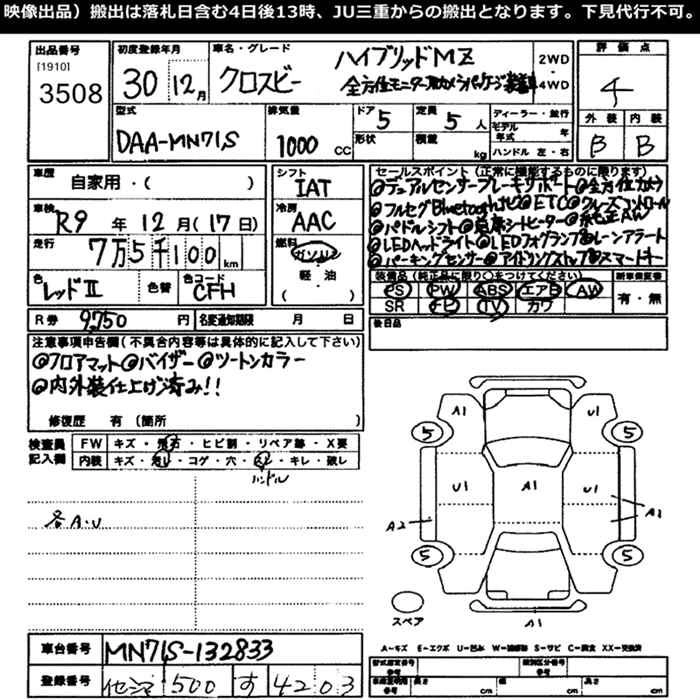 映像出品）搬出は落札日含む4日後13時、JU三重からの搬出となります。下見代行不可。
出品番号
[1910]
3508
初度登録年月
30 12月
車名・グレード
クロスビー
ハイブリッドMZ
全方位モニター用カメラパッケージ装着車
2WD
・
4WD
評価点
4
外装 内装
B B
型式
DAA-MN71S
排気量
1000 cc
ドア
5
形状
定員
5 人
積載
kg
ディーラー・並行
モデル年式 年
ハンドル 左・右
車歴
自家用・( )
車検
R9 年 12 月 (17日)
走行
7万5千100 km
色
レッドII
色替
色コード
CFH
シフト
IAT
冷房
AAC
燃料
ガソリン
軽・油
( )
セールスポイント（正常に機能するものに限ります）
◎デュアルセンサーブレーキサポート◎全方位カメラ
◎フルセグBluetoothナビ◎ETC◎クルーズコントロール
◎パドルシフト◎座席シートヒーター◎純正AW
◎LEDヘッドライト◎LEDフォグランプ◎レーンアラート
◎パーキングセンサー◎アイドリングストップ◎スマートキー
装備品（純正品に限り○をつけてください） 新車保証書
PS PW ABS エアB AW
SR TV カワ
有・無
R券 9,750 円
名変通知期限 月 日
後日品
注意事項申告欄（不具合内容等は具体的に記入して下さい）
◎フロアマット◎バイザー◎ツートンカラー
◎内外装仕上げ済み!!
修復歴 有（箇所
検査員
記入欄
FW キズ・飛石・ヒビ割・リペア跡・X要
内装 キズ・汚レ・コゲ・穴・スレ・キレ・破レ
ハンドル
各A・U
A1 U1
5 5
U1 A1 U1
A2 A2
5 5
スペア
A1
A-キズ E-エクボ U-凹み W-補修跡 S-サビ C-腐食 XX-交換済
車台番号 MN71S-132833
登録番号 500 す 4203
型式指定番号 類別区分番号
車庫証明用 長さ cm 幅 cm 高さ cm